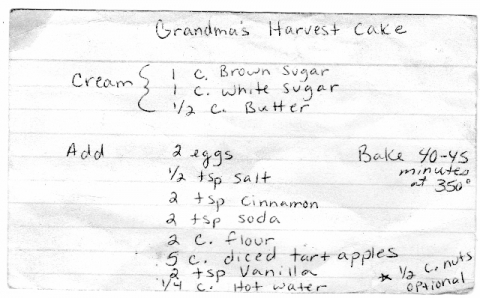 Grandma's Harvest Cake
Cream { 1 c. Brown Sugar
1 c. White Sugar
1/2 c. Butter
Add 2 eggs
1/2 tsp salt
2 tsp cinnamon
2 tsp soda
2 c. flour
5 c. diced tart apples
2 tsp Vanilla
1/4 c. Hot water
Bake 40-45
minutes
at 350°
* 1/2 c. nuts
optional